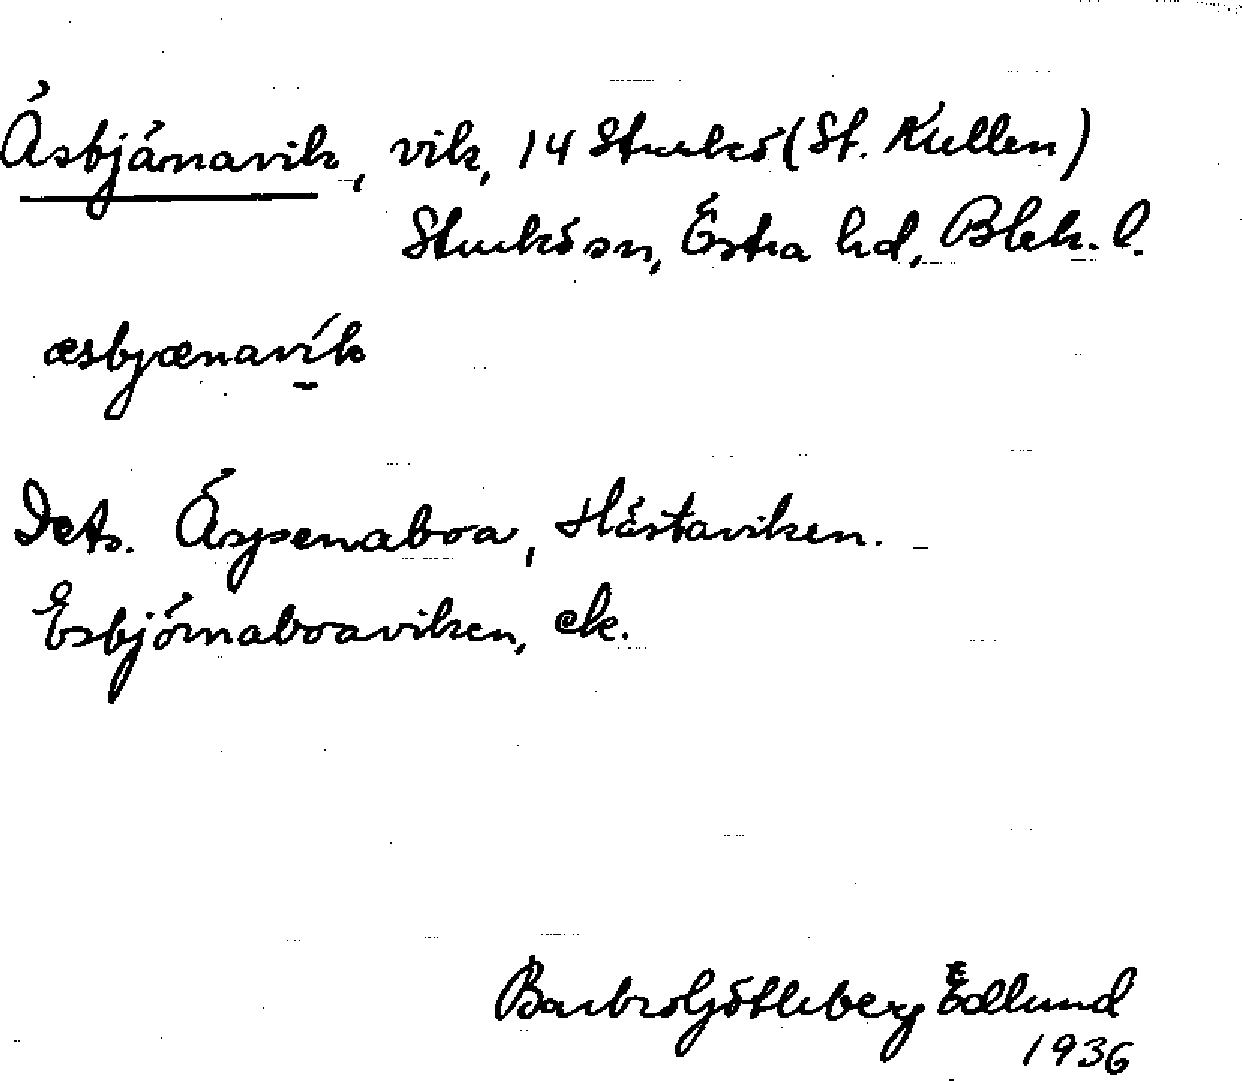 Äsbjänavik, vik, 14 Sturkö (St. Kullen)
Sturkö sn, Östra hd, Blek. l.
æsbjænavík
Dets. Äspenaboa, Hästaviken.
Esbjörnaboaviken, ek.
Barbro Götleberg Edlund
1936